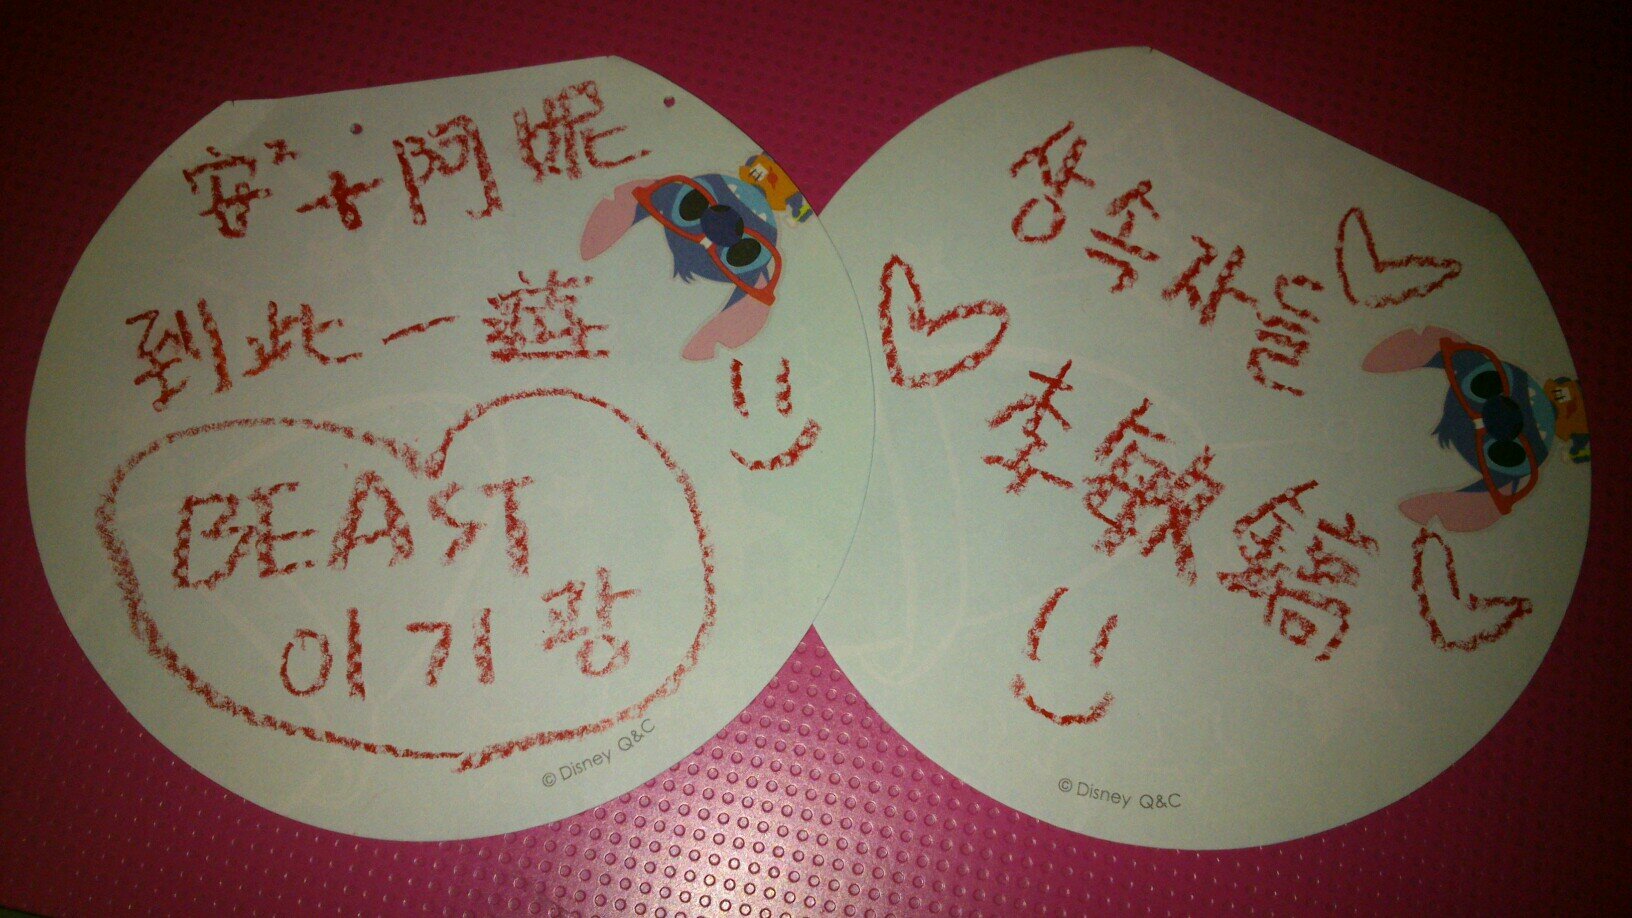 安²+阿妮
到此一遊
BEAST
이기광
© Disney Q&C
상속자들
李敏鎬
© Disney Q&C